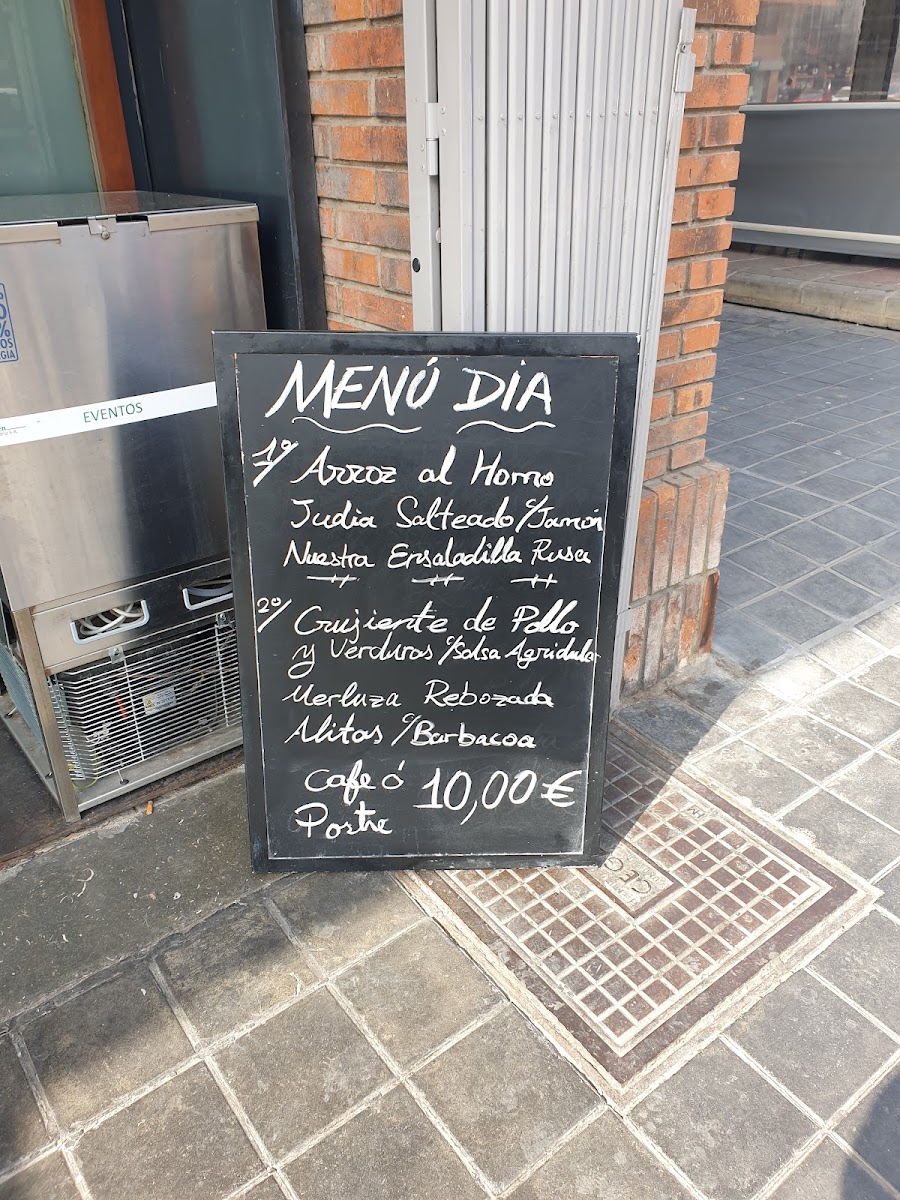 MENÚ DIA
1º/ Arroz al Horno
Judia Salteado c/Jamón
Nuestra Ensaladilla Rusa
2º/ Crujiente de Pollo
y Verduras c/Salsa Agridulce
Merluza Rebozada
Alitas c/Barbacoa
Cafe ó 10,00€
Postre
EVENTOS